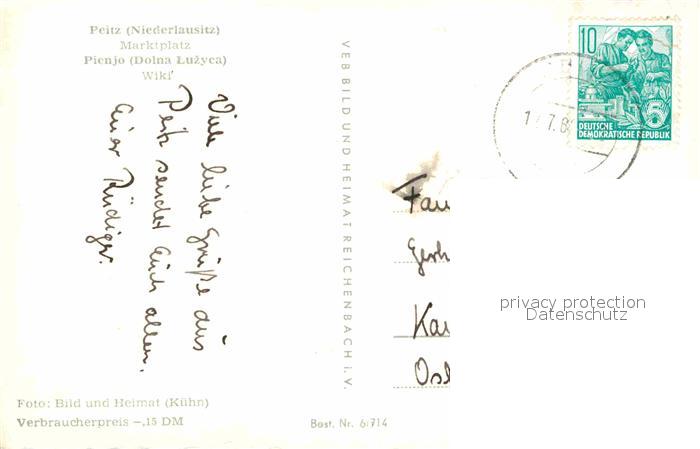 Peitz (Niederlausitz)
Marktplatz
Pienjo (Dolna Łužyca)
Wiki
Viele liebe Grüße aus
Peitz sendet Euch allen.
Euer Rüdiger.
Foto: Bild und Heimat (Kühn)
Verbraucherpreis -,15 DM
VEB BILD UND HEIMAT REICHENBACH i. V.
Best. Nr. 6/714
10
5
DEUTSCHE
DEMOKRATISCHE REPUBLIK
Fam
Gerh
Kar
privacy protection
Datenschutz